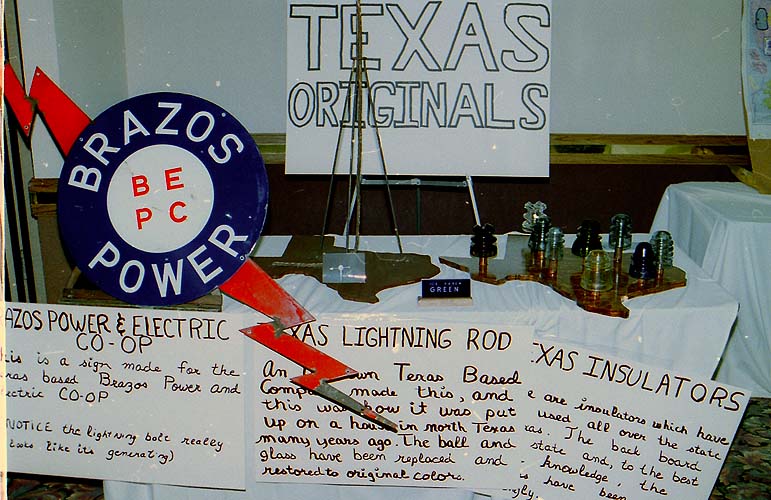 TEXAS
ORIGINALS
BRAZOS
B E
P C
POWER
GREEN
AZOS POWER & ELECTRIC
CO-OP
his is a sign made for the
xas based Brazos Power and
ectric CO-OP
NOTICE the lightning bolt really
looks like its generating)
XAS LIGHTNING ROD
An own Texas Based
Comp made this, and
this was how it was put
up on a house in north Texas
many years ago. The ball and
glass have been replaced and
restored to original colors.
EXAS INSULATORS
e are insulators which have
used all over the state
as. The back board
state and, to the best
knowledge, the
s have been
gly.